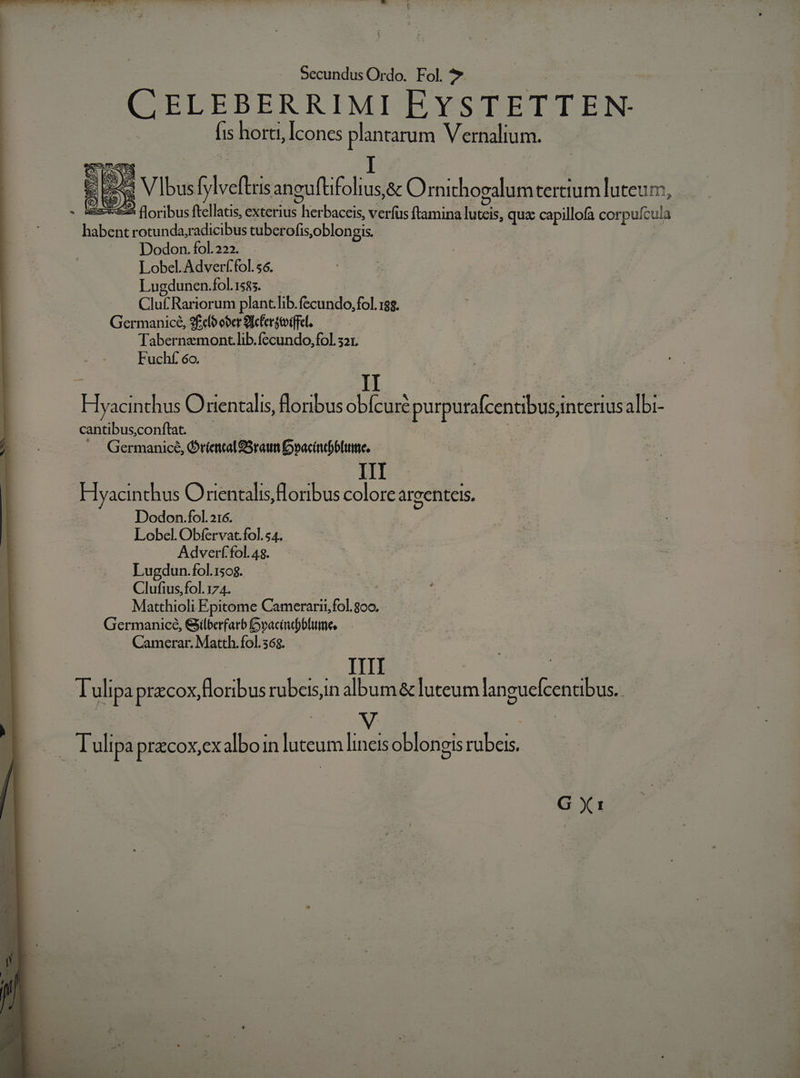 Secundus Ordo. Fol. 7
CELEBERRIMI EYSTETTEN-
ſis horti, Icones plantarum Vernalium.
I
BVlbus ſylveſtris anguſtifolius, & Ornithogalum tertium luteum,
floribus ſtellatis, exterius herbaceis, verſus ſtamina luteis, quæ capilloſa corpuſcula
habent rotunda, radicibus tuberoſis, oblongis.
Dodon. fol. 222.
Lobel. Adverſ. fol. 56.
Lugdunen. fol. 1585.
Cluſ. Rariorum plant. lib. ſecundo, fol. 188.
Germanicè, Feld oder Ackerzwiffel.
Tabernæmont. lib. ſecundo, fol. 321.
Fuchſ. 60.
II
Hyacinthus Orientalis, floribus obſcurè purpuraſcentibus, interius albi-
cantibus, conſtat.
Germanicè, Oriental Braun Hyacinthblume.
III
Hyacinthus Orientalis, floribus colore argenteis.
Dodon. fol. 216.
Lobel. Obſervat. fol. 54.
Adverſ. fol. 48.
Lugdun. fol. 1508.
Cluſius, fol. 174.
Matthioli Epitome Camerarii, fol. 800.
Germanicè, Silberfarb Hyacinthblume.
Camerar. Matth. fol. 368.
IIII
Tulipa præcox, floribus rubeis, in album & luteum langueſcentibus.
V
Tulipa præcox, ex albo in luteum lineis oblongis rubeis.
G )( 1